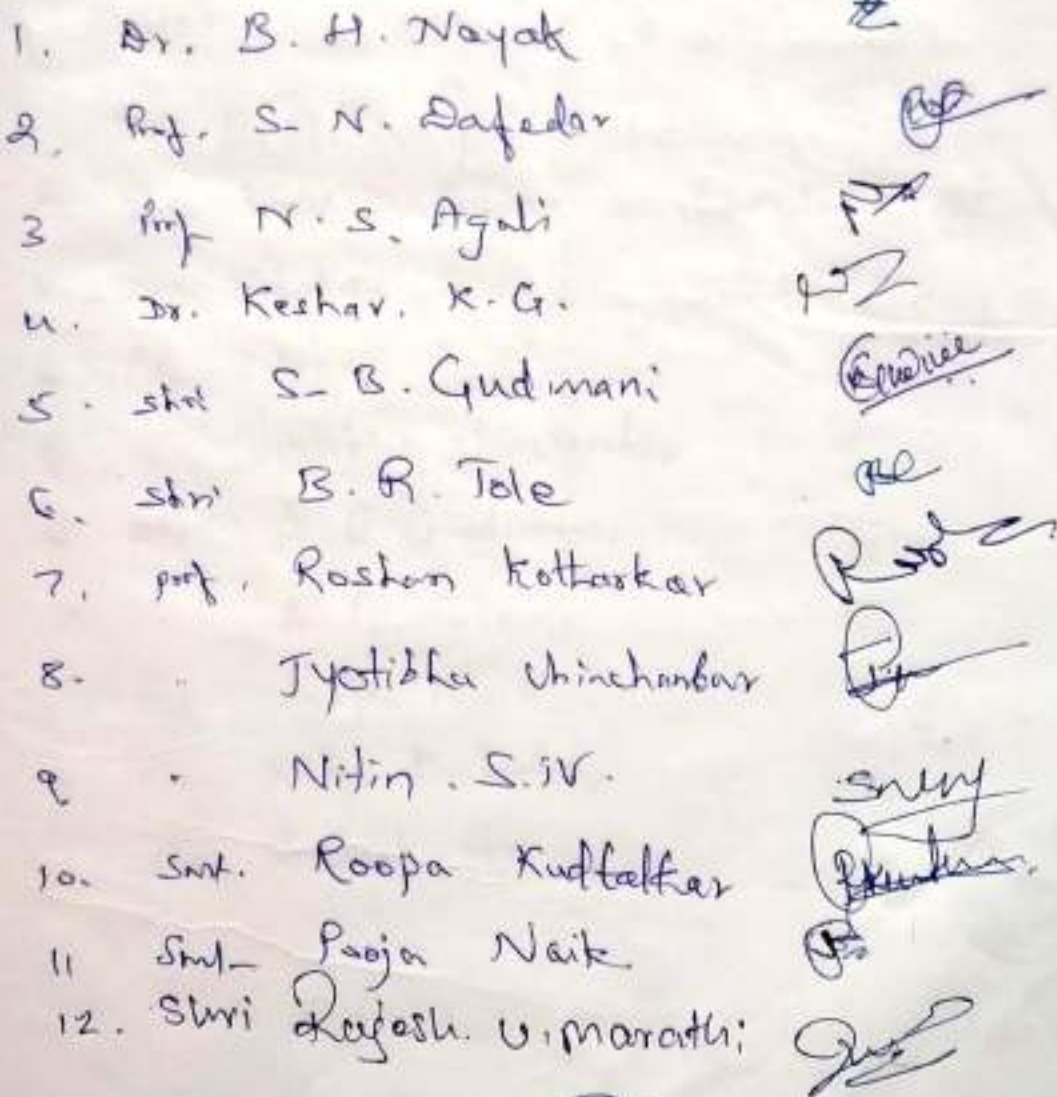 1. Dr. B. H. Nayak
2. Prof. S. N. Dafedar
3 Prof N. S. Agali
4. Dr. Keshav. K. G.
5. Shri S. B. Gudimani
6. Shri B. R. Tole
7. Prof. Roshan Kotharkar
8. " Jyotibha
9 " Nitin . S.
10. Smt. Roopa
11 Smt Pooja Naik
12. Shri Rajesh. V. Marathi